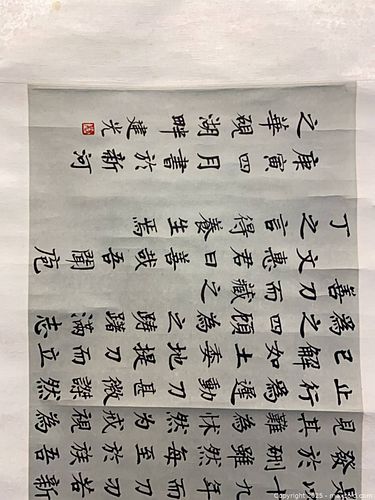 是十九年而刀刃若新
發於硎雖然每至於族吾
見其難為怵然為戒視為
止行為遲動刀甚微謋然
已解如土委地提刀而立
為之四顧為之躊躇滿志
善刀而藏之
文惠君曰善哉吾聞庖
丁之言得養生焉
庚寅四月書於新河
之華硯湖畔建光